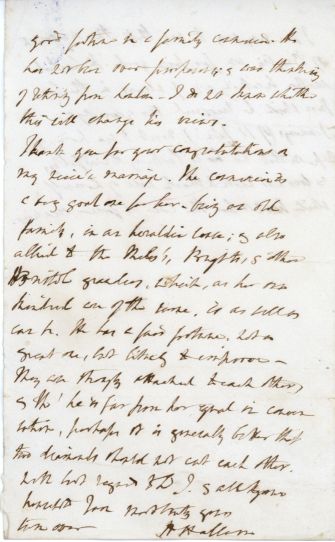 good fortune in a family
has not been over prosperous; & was thinking
of retiring from I do not know whether
this will change his views.
Thank you for your congratulations on
my niece's marriage. The connexion is
a very good one for her. being an old
family, in an heraldic case; & also
allied to the Miles's, & other
Bristol grandees, which, as her own
kindred are of the same, is as well as
can be. He has a fair fortune, not a
great one, but likely to improve –
They are strongly attached to each other,
& tho' he is far from her equal in conver
sation, perhaps it is generally better that
two diamonds should not cut each other.
With best regards to D. J. & all yours
I am most truly yours
turn over H Hallam